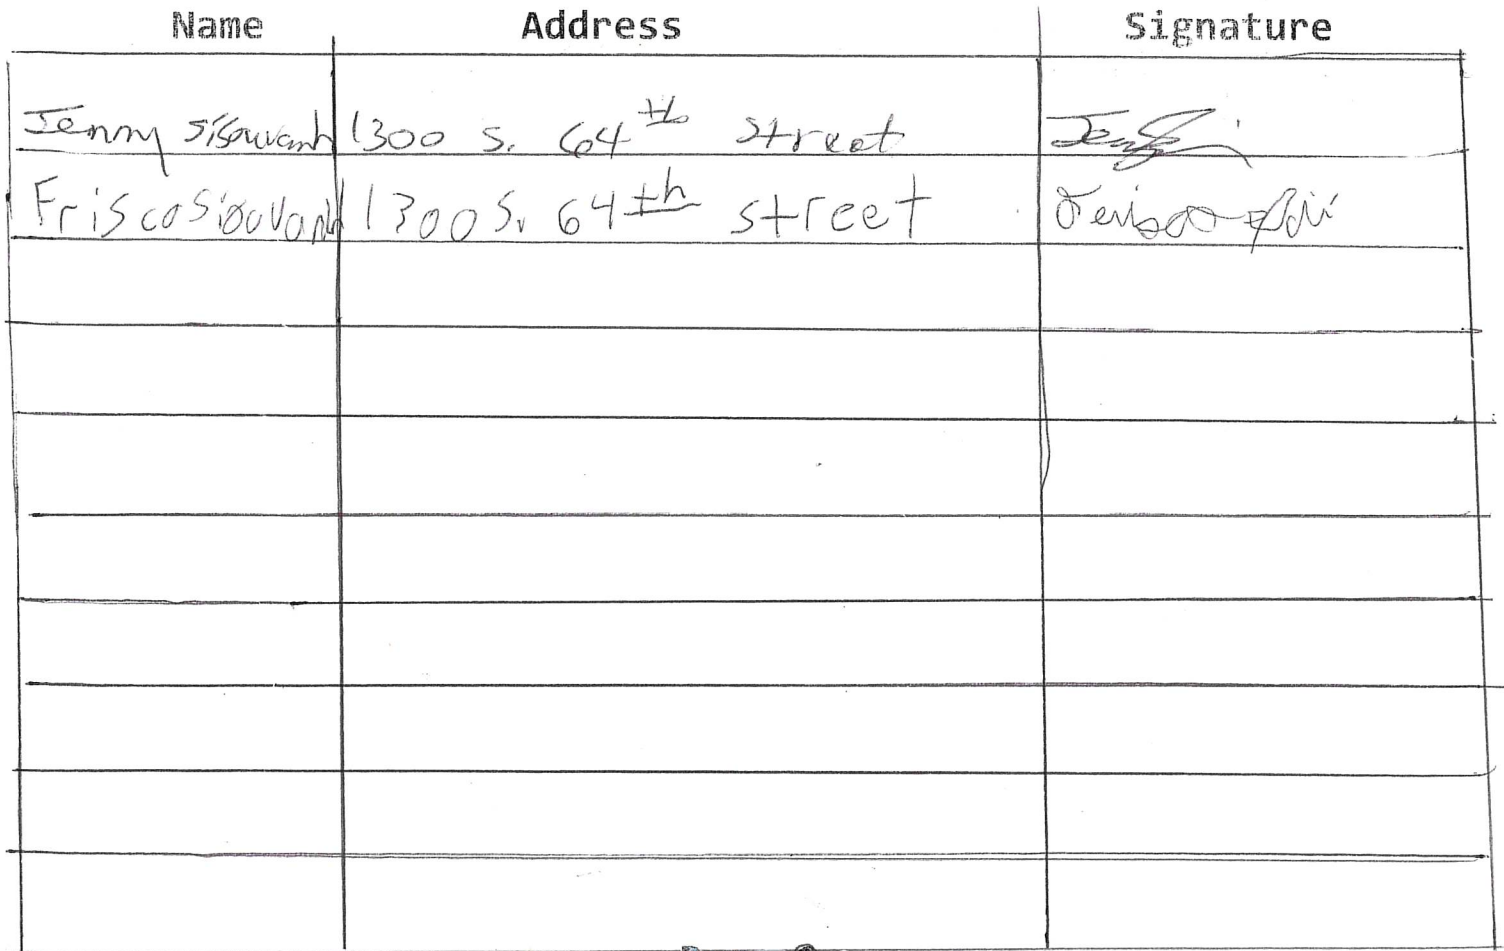 Name Address Signature
Jenny Sisouvanh 1300 S. 64th Street
Frisco Sisouvanh 1300 S. 64th street